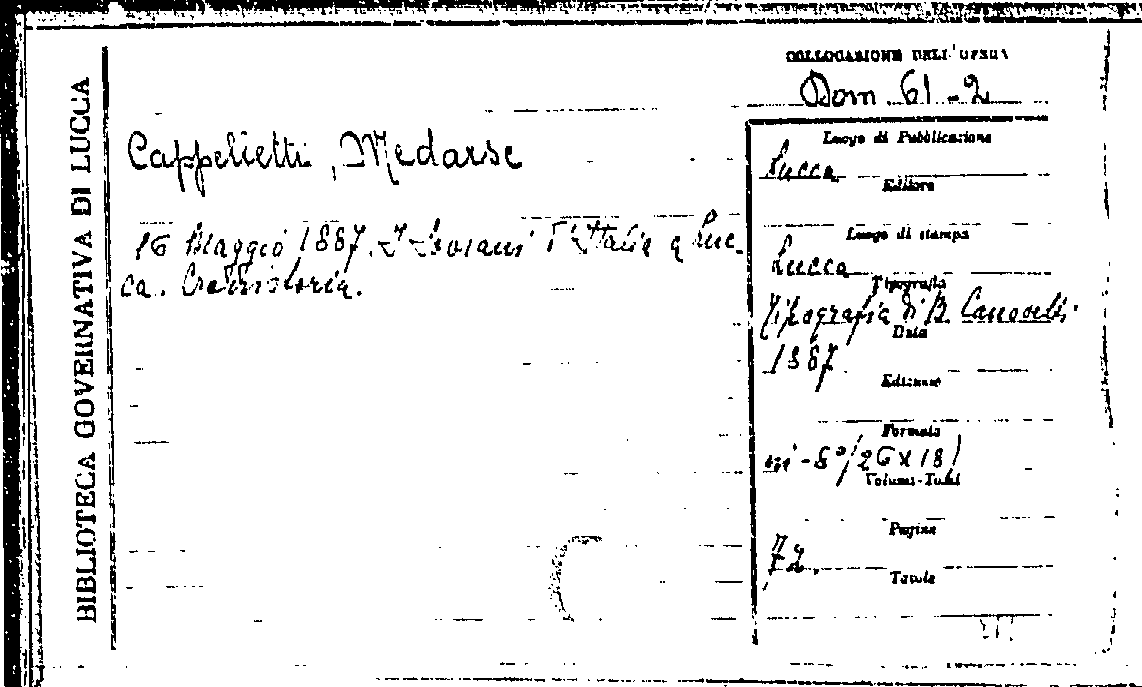 BIBLIOTECA GOVERNATIVA DI LUCCA
COLLOCAZIONE DELL'OPERA
Dom. 61-2
Cappelletti, Medarse
16 Maggio 1887. I Sovrani d'Italia a Luc-
ca. Cronistoria.
Luogo di Pubblicazione
Lucca
Editore
Luogo di stampa
Lucca
Tipografia
Tipografia di B. Canovetti
Data
1887
Edizione
Formato
in-8°(26x18)
Volumi-Tomi
Pagine
72.
Tavole